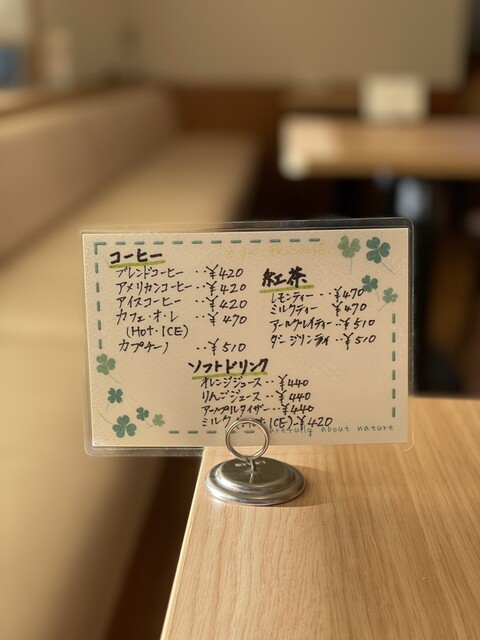 コーヒー
ブレンドコーヒー ‥¥420
アメリカンコーヒー‥¥420
アイスコーヒー ‥¥420
カフェ・オ・レ ‥¥470
(HOT・ICE)
カプチーノ ‥¥510
紅茶
レモンティー ‥¥470
ミルクティー ¥470
アールグレイティー‥¥510
ダージリンティ‥¥510
ソフトドリンク
オレンジジュース‥¥440
りんごジュース‥¥440
アップルタイザー‥¥440
ミルク ICE)‥¥420
carefully about nature